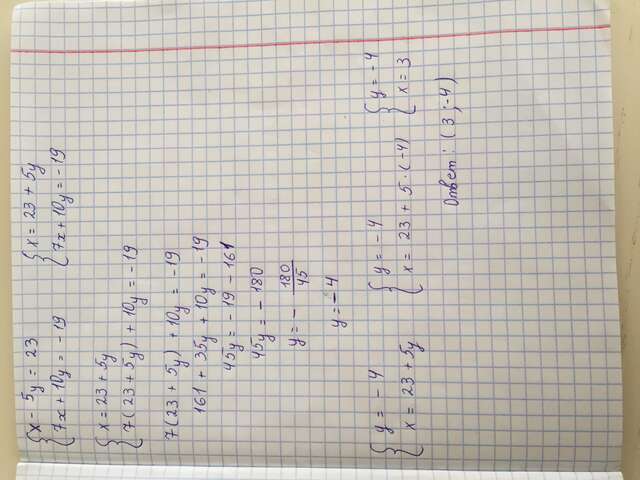 { x - 5y = 23 { x = 23 + 5y
{ 7x + 10y = -19 { 7x + 10y = -19
{ x = 23 + 5y
{ 7(23 + 5y) + 10y = -19
7(23 + 5y) + 10y = -19
161 + 35y + 10y = -19
45y = -19 - 161
45y = - 180
y = - 180/45
y = - 4
{ y = - 4 { y = - 4 { y = - 4
{ x = 23 + 5y { x = 23 + 5·(-4) { x = 3
Ответ: (3 ; -4)